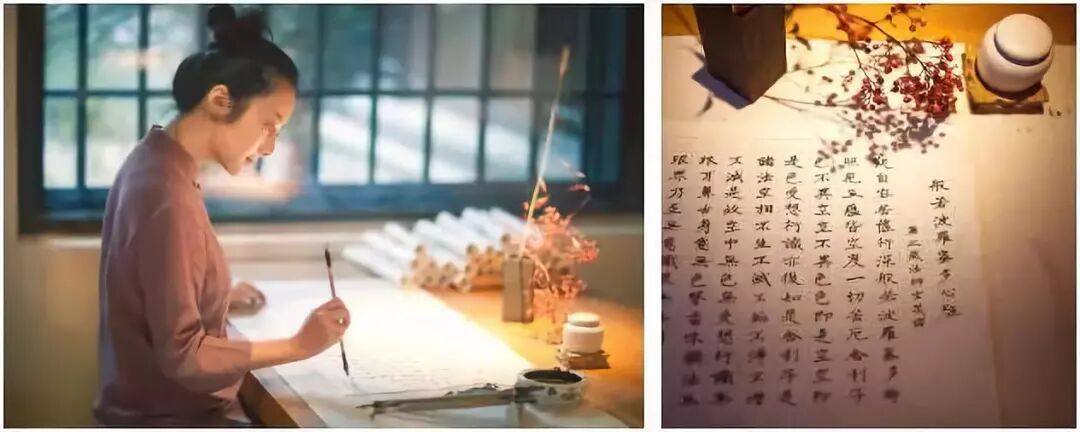 般若波羅蜜多心經
三藏法師玄奘譯
觀自在菩薩行深般若波羅蜜多時
照見五蘊皆空度一切苦厄舍利子
色不異空空不異色色即是空空即
是色受想行識亦復如是舍利子是
諸法空相不生不滅不垢不淨不增
不減是故空中無色無受想行識無
眼耳鼻舌身意無色聲香味觸法無
眼界乃至無意識